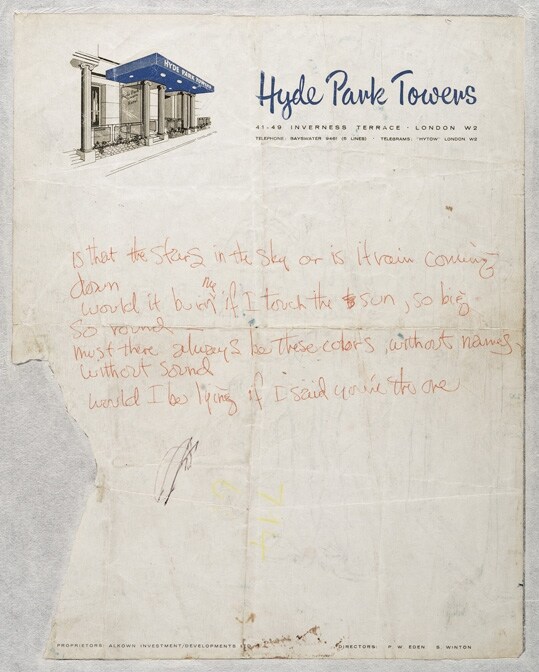 HYDE PARK TOWERS
Hyde Park Towers
41-49 INVERNESS TERRACE · LONDON W2
TELEPHONE: BAYSWATER 9461 (5 LINES) · TELEGRAMS: "HYTOW" LONDON W2
is that the stars in the sky or is it rain coming
down
would it burn me if I touch the sun, so big
so round
must there always be these colors, without names,
without sound
would I be lying if I said you're the one
PROPRIETORS: ALROWN INVESTMENT/DEVELOPMENTS
DIRECTORS: P. W. EDEN S. WINTON